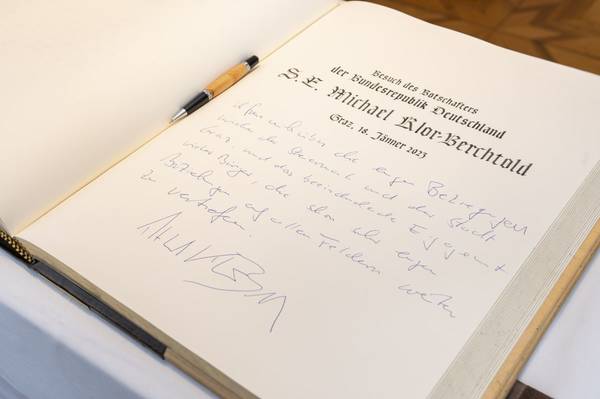 Besuch des Botschafters
der Bundesrepublik Deutschland
S. E. Michael Klor-Berchtold
Graz, 18. Jänner 2023
über die engen Beziehungen
der Steiermark und der Stadt
Graz, und das beeindruckende Engagement
vieler Bürger, die schon sehr engen
Beziehungen auf allen Feldern weiter
zu vertiefen.